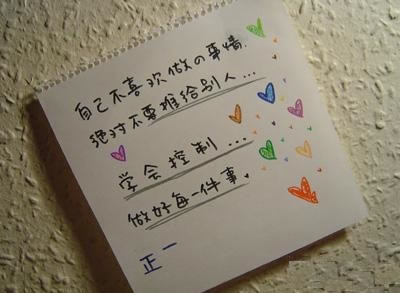 自己不喜欢做の事情.
绝对不要推给别人...
学会控制...
做好每一件事.
正一